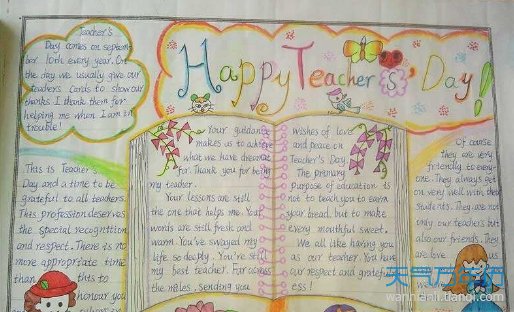 Happy Teacher's Day!
Teacher's
Day comes on septem-
ber 10th every year. On
the day we usually give our
teachers Cards to show our
thanks I thank them for
helping me when I am in
trouble!
This is Teacher's
Day and a time to be
grateful to all teachers.
This profession deserves
the special recognition
and respect. There is no
more appropriate time
than this to
honour you
Your guidan
makes us to achieve
what we have dreamt
for. Thank you for being
my teacher.
Your lessons are still
the one that helps me. Your
words are still fresh and
warm. You've swayed my
life so deeply. You're still
my best teacher. Far across
the miles, sending you
wishes of love
and peace on
Teacher's Day.
The primary
purpose of education is
not to teach you to earn
your bread, but to make
every mouthful sweet.
We all like having you
as our teacher. You have
our respect and grateful
ess!
Of course
they are very
friendly to every-
one. They always get
on very well with their
students. They are not
only our teachers but
also our friends. They
are love us
天气万年历
wannianli.tianqi.com